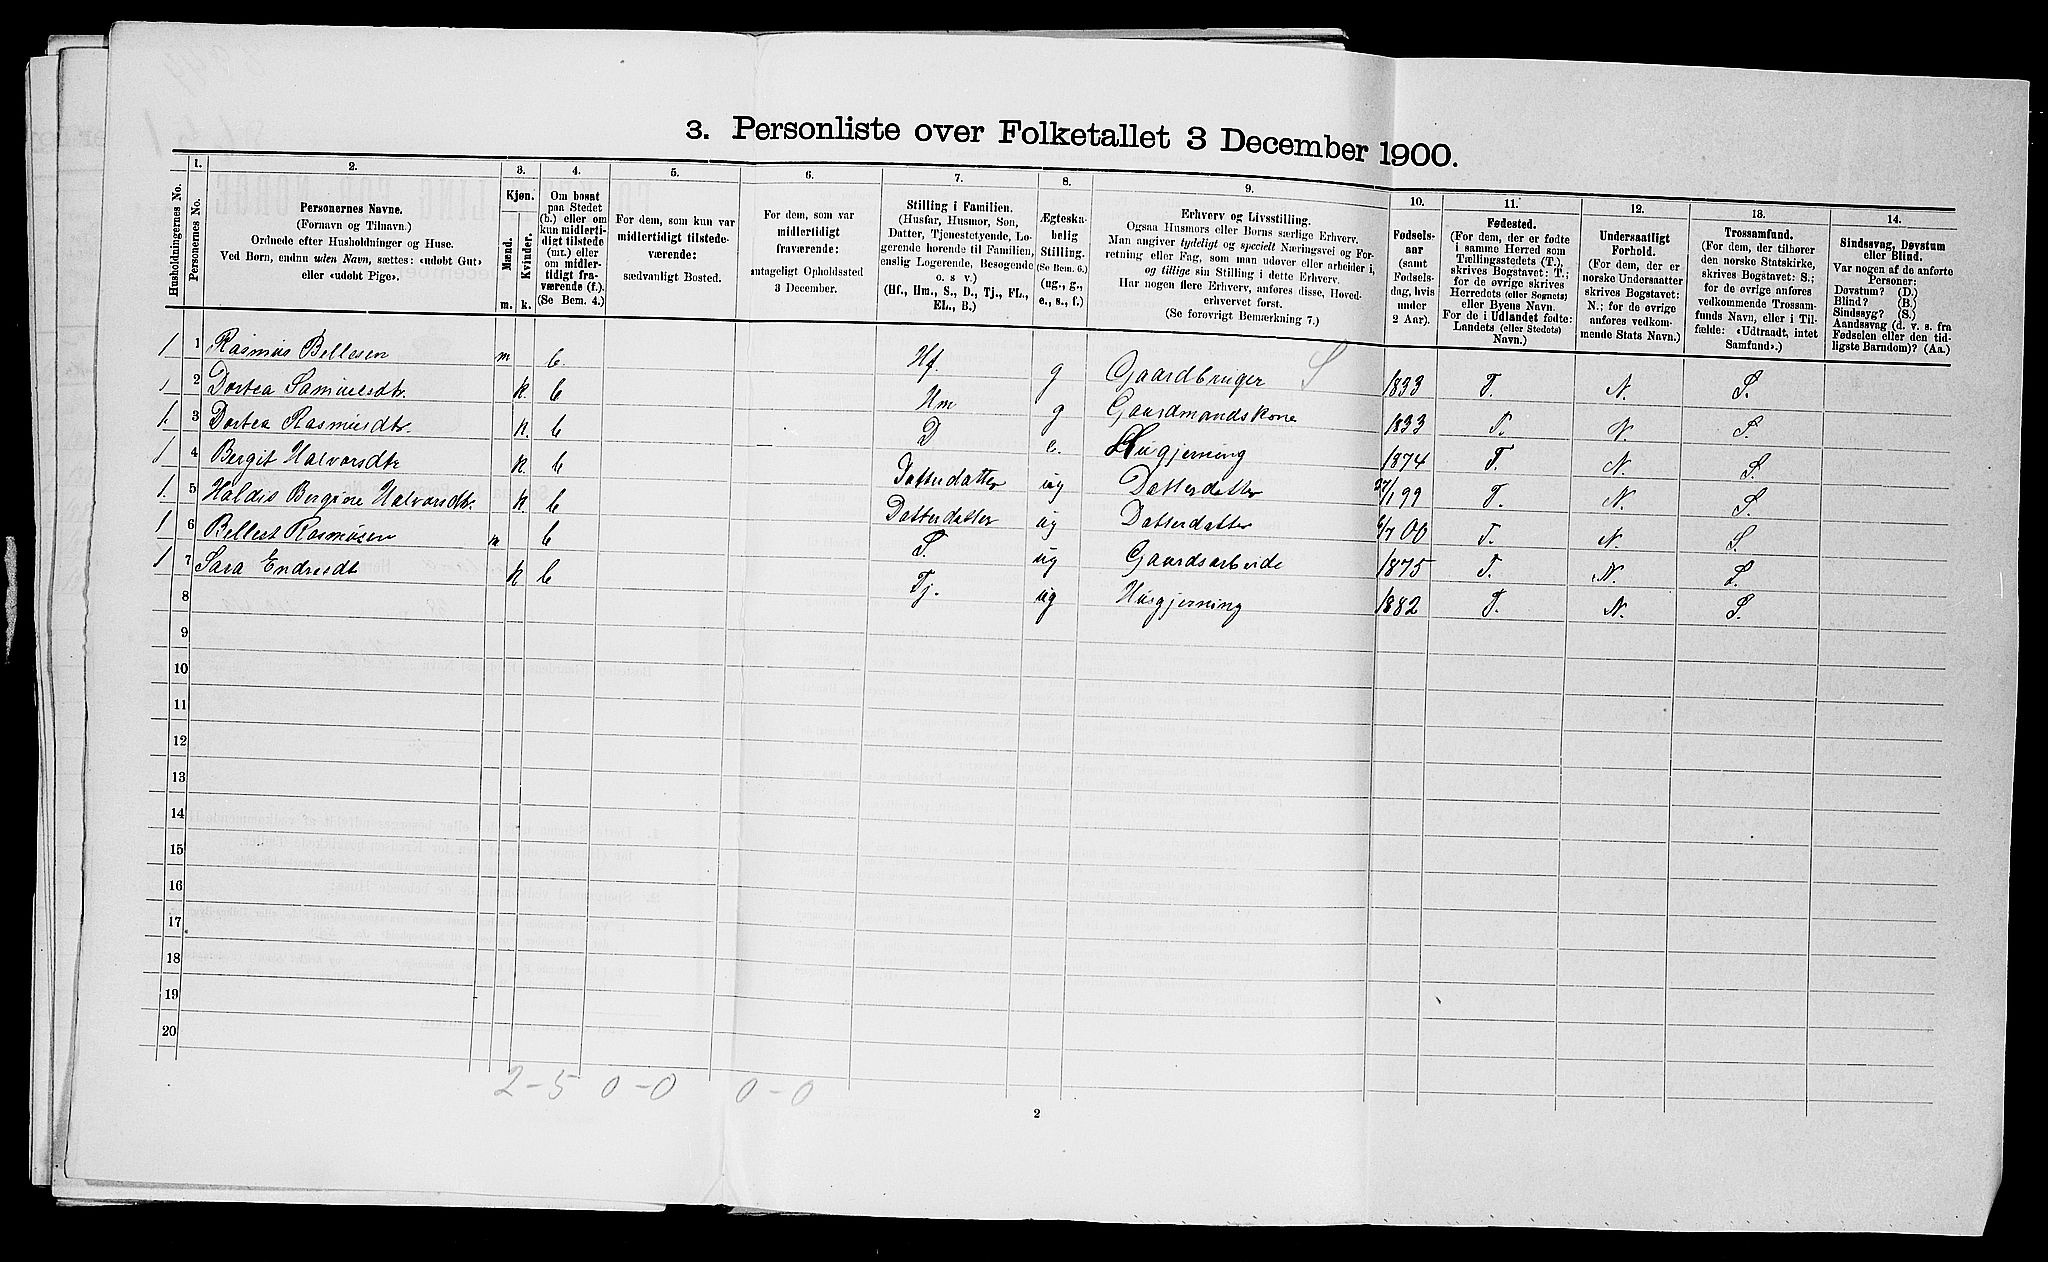 3. Personliste over Folketallet 3 December 1900.
Husholdningernes No.
1. Personernes No.
2. Personernes Navne.
(Fornavn og Tilnavn.)
Ordnede efter Husholdninger og Huse.
Ved Børn, endnu uden Navn, sættes: «udøbt Gut»
eller «udøbt Pige».
3. Kjøn.
Mænd. Kvinder.
m. k.
4. Om bosat
paa Stedet
(b.) eller om
kun midlerti-
digt tilstede
(mt.) eller
om midler-
tidigt fra-
værende (f.).
(Se Bem. 4.)
5. For dem, som kun var
midlertidigt tilstede-
værende:
sædvanligt Bosted.
6. For dem, som var
midlertidigt
fraværende:
antageligt Opholdssted
3 December.
7. Stilling i Familien.
(Husfar, Husmor, Søn,
Datter, Tjenestetyende, Lo-
gerende hørende til Familien,
enslig Logerende, Besøgende
o. s v.)
(Hf., Hm., S., D., Tj., FL.,
EL., B.)
8. Ægteska-
belig
Stilling.
(Se Bem. 6.)
(ug., g.,
e., s., f.)
9. Erhverv og Livsstilling.
Ogsaa Husmors eller Børns særlige Erhverv.
Man angiver tydeligt og specielt Næringsvei og For-
retning eller Fag, som man udøver eller arbeider i,
og tillige sin Stilling i dette Erhverv.
Har nogen flere Erhverv, anføres disse, Hoved-
erhvervet først.
(Se forøvrigt Bemærkning 7.)
10. Fødsels-
aar
(samt
Fødsels-
dag, hvis
under
2 Aar).
11. Fødested.
(For dem, der er fødte
i samme Herred som
Tællingsstedets (T.),
skrives Bogstavet: T.;
for de øvrige skrives
Herredets (eller Sognets)
eller Byens Navn.
For de i Udlandet fødte:
Landets (eller Stedets)
Navn.)
12. Undersaatligt
Forhold.
(For dem, der er
norske Undersaatter
skrives Bogstavet:
N.; for de øvrige
anføres vedkom-
mende Stats Navn.)
13. Trossamfund.
(For dem, der tilhører
den norske Statskirke,
skrives Bogstavet: S.;
for de øvrige anføres
vedkommende Trossam-
funds Navn, eller i Til-
fælde: «Udtraadt, intet
Samfund».)
14. Sindssvag, Døvstum
eller Blind.
Var nogen af de anførte
Personer:
Døvstum? (D.)
Blind? (B.)
Sindssyg? (S.)
Aandssvag (d. v. s. fra
Fødselen eller den tid-
ligste Barndom)? (Aa.)
1 1 Rasmus Bellesen m b. Hf. g Gaardbruger S 1833 T. N. S.
1 2 Dortea Samuelsdtr. k. b Hm g Gaardmandskone 1833 T. N. S.
1. 3 Dortea Rasmusdtr. k. b D e. Husgjerning 1874 T. N. S.
1 4 Bergit Halvorsdtr k. b Datterdatter ug Datterdatter 27/1 99 T. N. S.
1. 5 Haldis Bergine Halvorsdtr. k. b Datterdatter ug Datterdatter 6/7 00 T. N. S.
1 6 Bellest Rasmusen m b S. ug Gaardsarbeide 1875 T. N. S.
1 7 Sara Endresdt k b Tj. ug Husgjerning 1882 T. N. S.
8
9
10
11
12
13
14
15
16
17
18
19
20
2-5 0-0 0-0
2